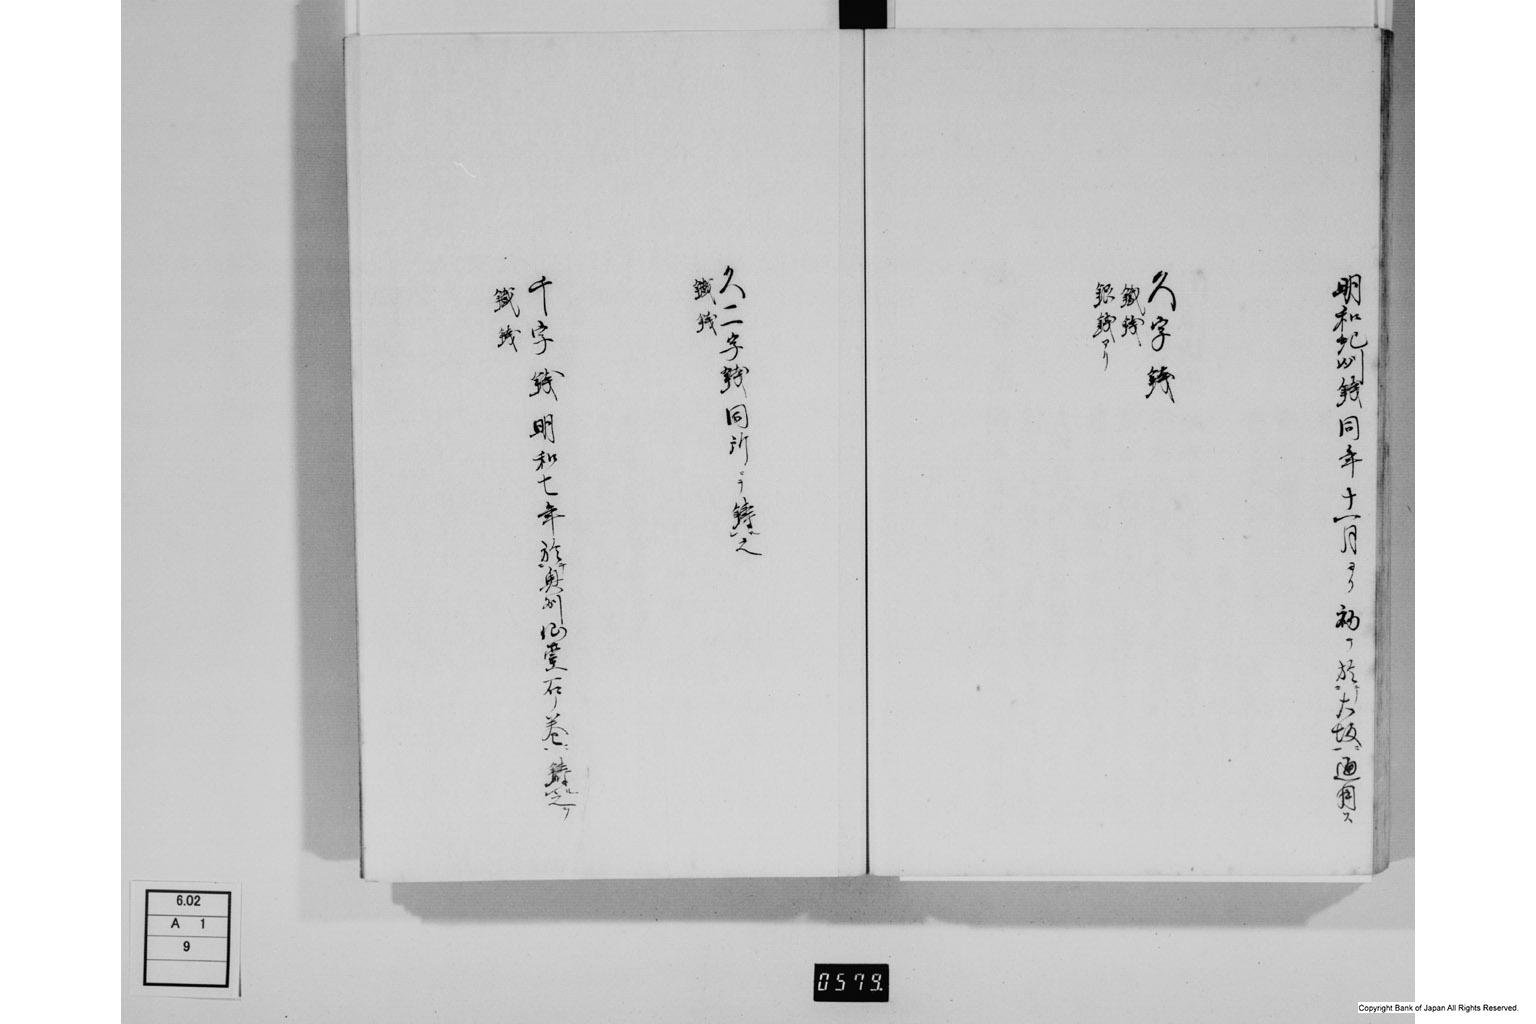 明和紀州銭同年十一月ヨリ初テ於大坂通用ス
久字銭
鐵銭
銀銭アリ
久二字銭同所ニテ鋳之
鐵銭
千字銭明和七年於奥州仙臺石ノ巻鋳之
鐵銭
6.02
A 1
9
0579
Copyright Bank of Japan All Rights Reserved.